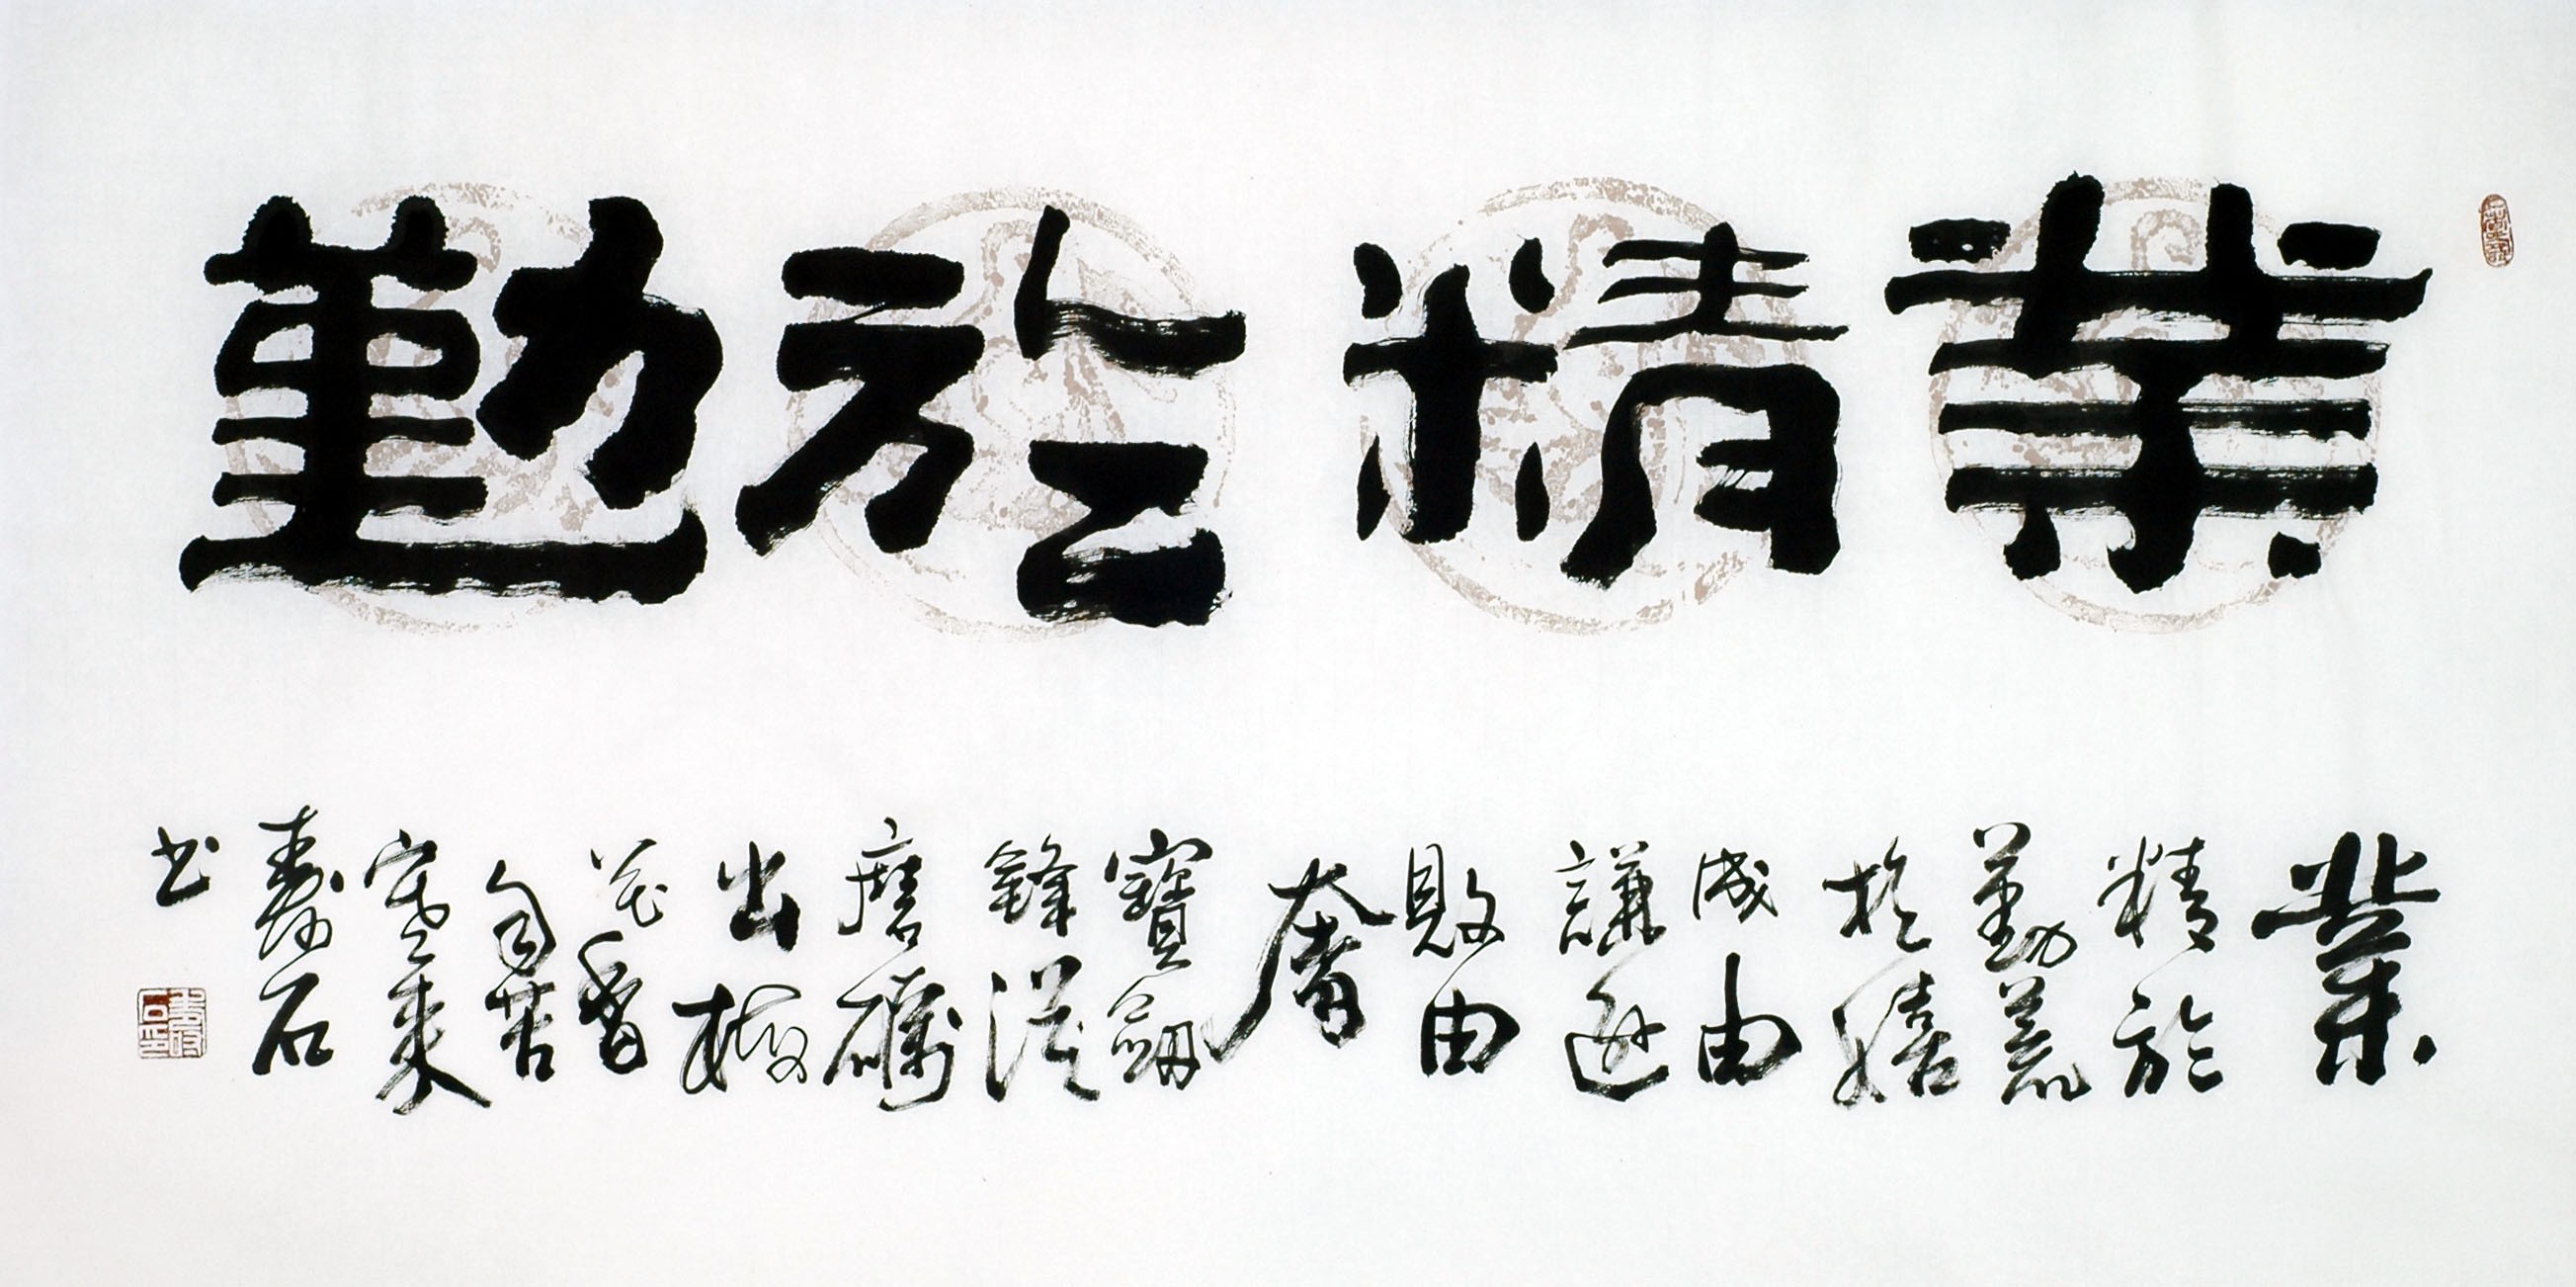 業精於勤
業
精於
勤荒
於嬉
成由
謙遜
敗由
奢
寶劍
鋒從
磨礪
出梅
花香
自苦
寒來
壽石
书